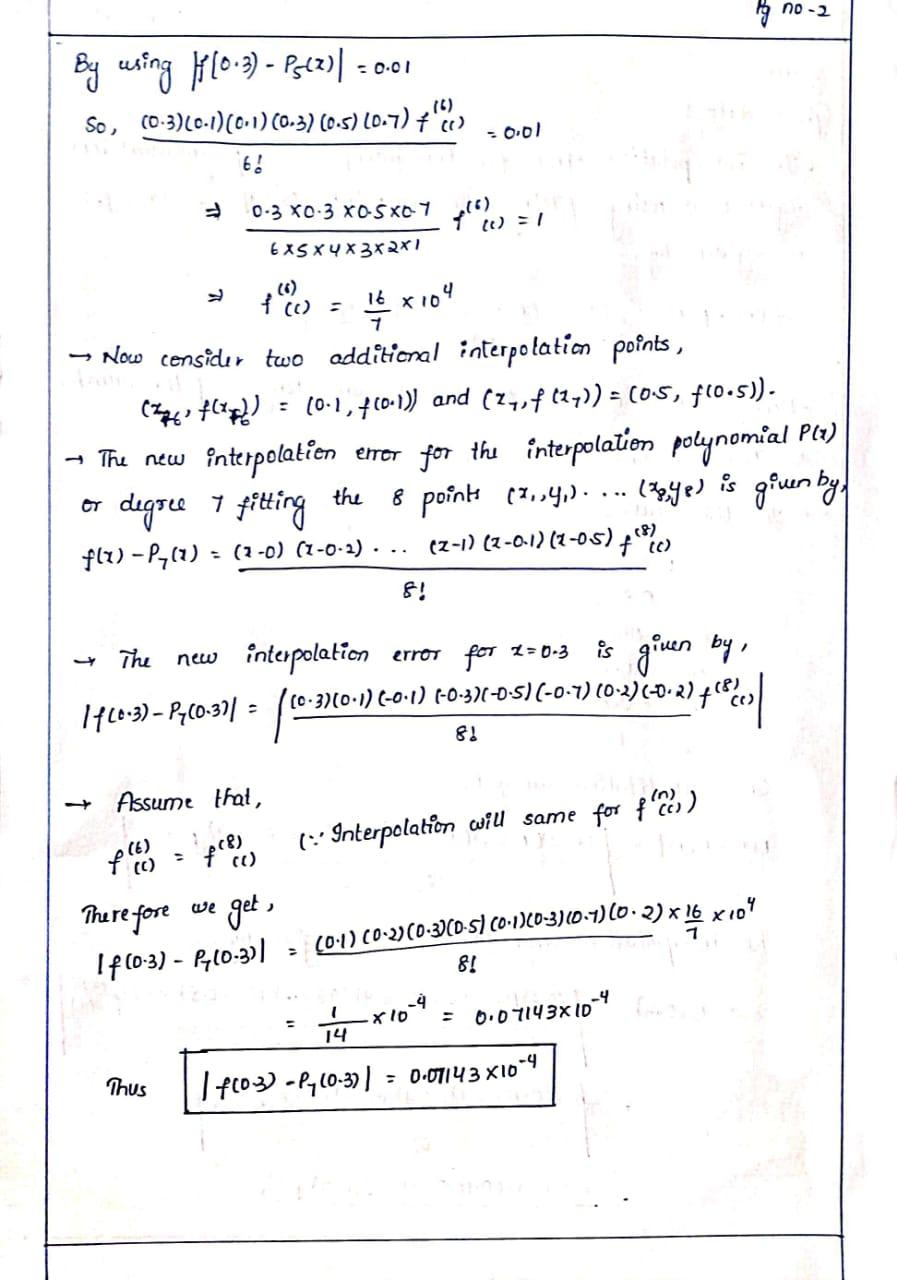 Pg no-2
By using |f(0.3) - P5(x)| = 0.01
So, (0.3)(0.1)(0.1)(0.3)(0.5)(0.7) f^(6)(c) / 6! = 0.01
⇒ 0.3 x0.3 x0.5x0.7 / 6x5x4x3x2x1 f^(6)(c) = 1
⇒ f^(6)(c) = 16/7 x 10^4
→ Now consider two additional interpolation points,
(x6, f(x6)) = (0.1, f(0.1)) and (x7, f(x7)) = (0.5, f(0.5)).
→ The new interpolation error for the interpolation polynomial P(x)
or degree 7 fitting the 8 points (x1, y1). ... (x8, y8) is given by,
f(x) - P7(x) = (x-0) (x-0.2) . .. (x-1) (x-0.1) (x-0.5) f^(8)(c) / 8!
→ The new interpolation error for x=0.3 is given by,
|f(0.3) - P7(0.3)| = |(0.3)(0.1) (-0.1) (-0.3)(-0.5) (-0.7) (0.2) (-0.2) f^(8)(c) / 8!|
→ Assume that,
f^(6)(c) = f^(8)(c) (∵ Interpolation will same for f^(n)(c))
Therefore we get,
|f(0.3) - P7(0.3)| = (0.1) (0.2) (0.3)(0.5) (0.1)(0.3)(0.7) (0.2) x 16/7 x 10^4 / 8!
= 1/14 x 10^-4 = 0.07143x10^-4
Thus |f(0.3) - P7(0.3)| = 0.07143 x10^-4